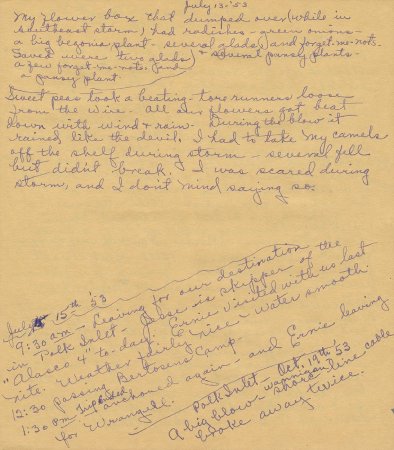 July 13-'53
My flower box that dumped over (while in
southeast storm) had radishes - green onions -
a big begonia plant - several glads, and forget-me-nots.
Saved were two glads, & several pansy plants -
a few forget-me-nots. (and
a pansy plant.
Sweet peas took a beating - tore runners loose
from the wire - All our flowers got beat
down with wind & rain. During the blow it
rained like the devil. I had to take my camels
off the shelf during storm - several fell
but didn't break. I was scared during
storm, and I don't mind saying so.
July 15th '53
9:30 am - Leaving for our destination
in Polk Inlet. is skipper of the
"Alasco 4" to-day. Ernie visited with us last
nite. Weather fairly nice & water smooth.
12:30 passing Camp
1:30 pm anchored again - and Ernie leaving
for Wrangell.
Polk Inlet - Oct. 19th '53
A big blow - wannigan shore line cable
broke away twice.